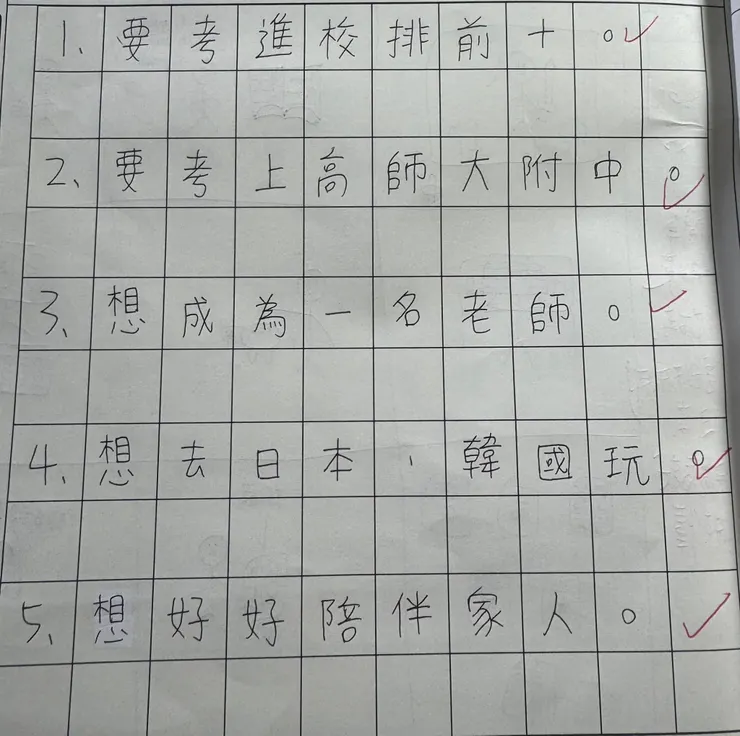 1、要考進校排前十。
2、要考上高師大附中。
3、想成為一名老師。
4、想去日本、韓國玩。
5、想好好陪伴家人。